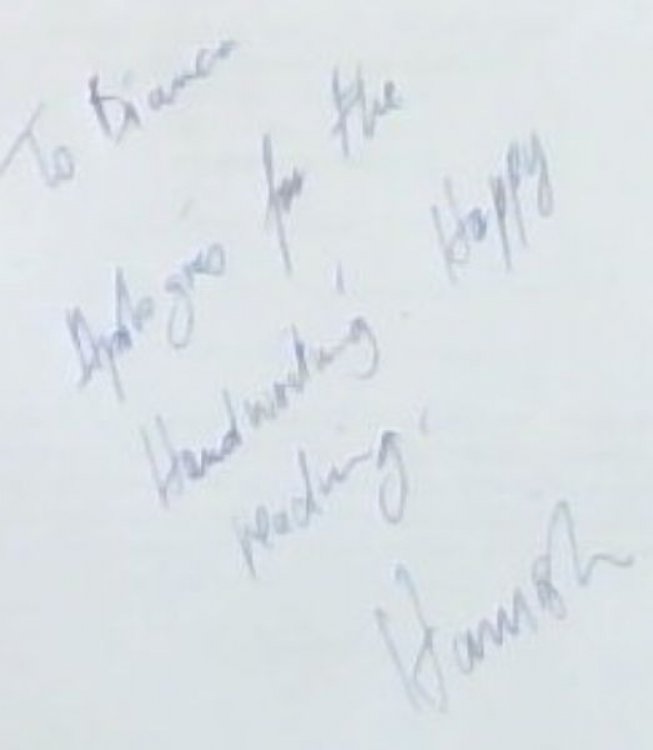 To Bianca
Apologies for the
Handwriting. Happy
reading.
Hamish